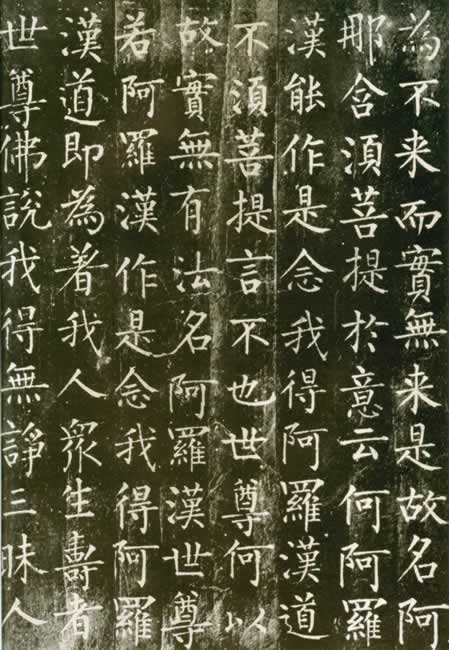 為不来而實無来是故名阿
那含須菩提於意云何阿羅
漢能作是念我得阿羅漢道
不須菩提言不也世尊何以
故實無有法名阿羅漢世尊
若阿羅漢作是念我得阿羅
漢道即為著我人眾生壽者
世尊佛說我得無諍三昧人